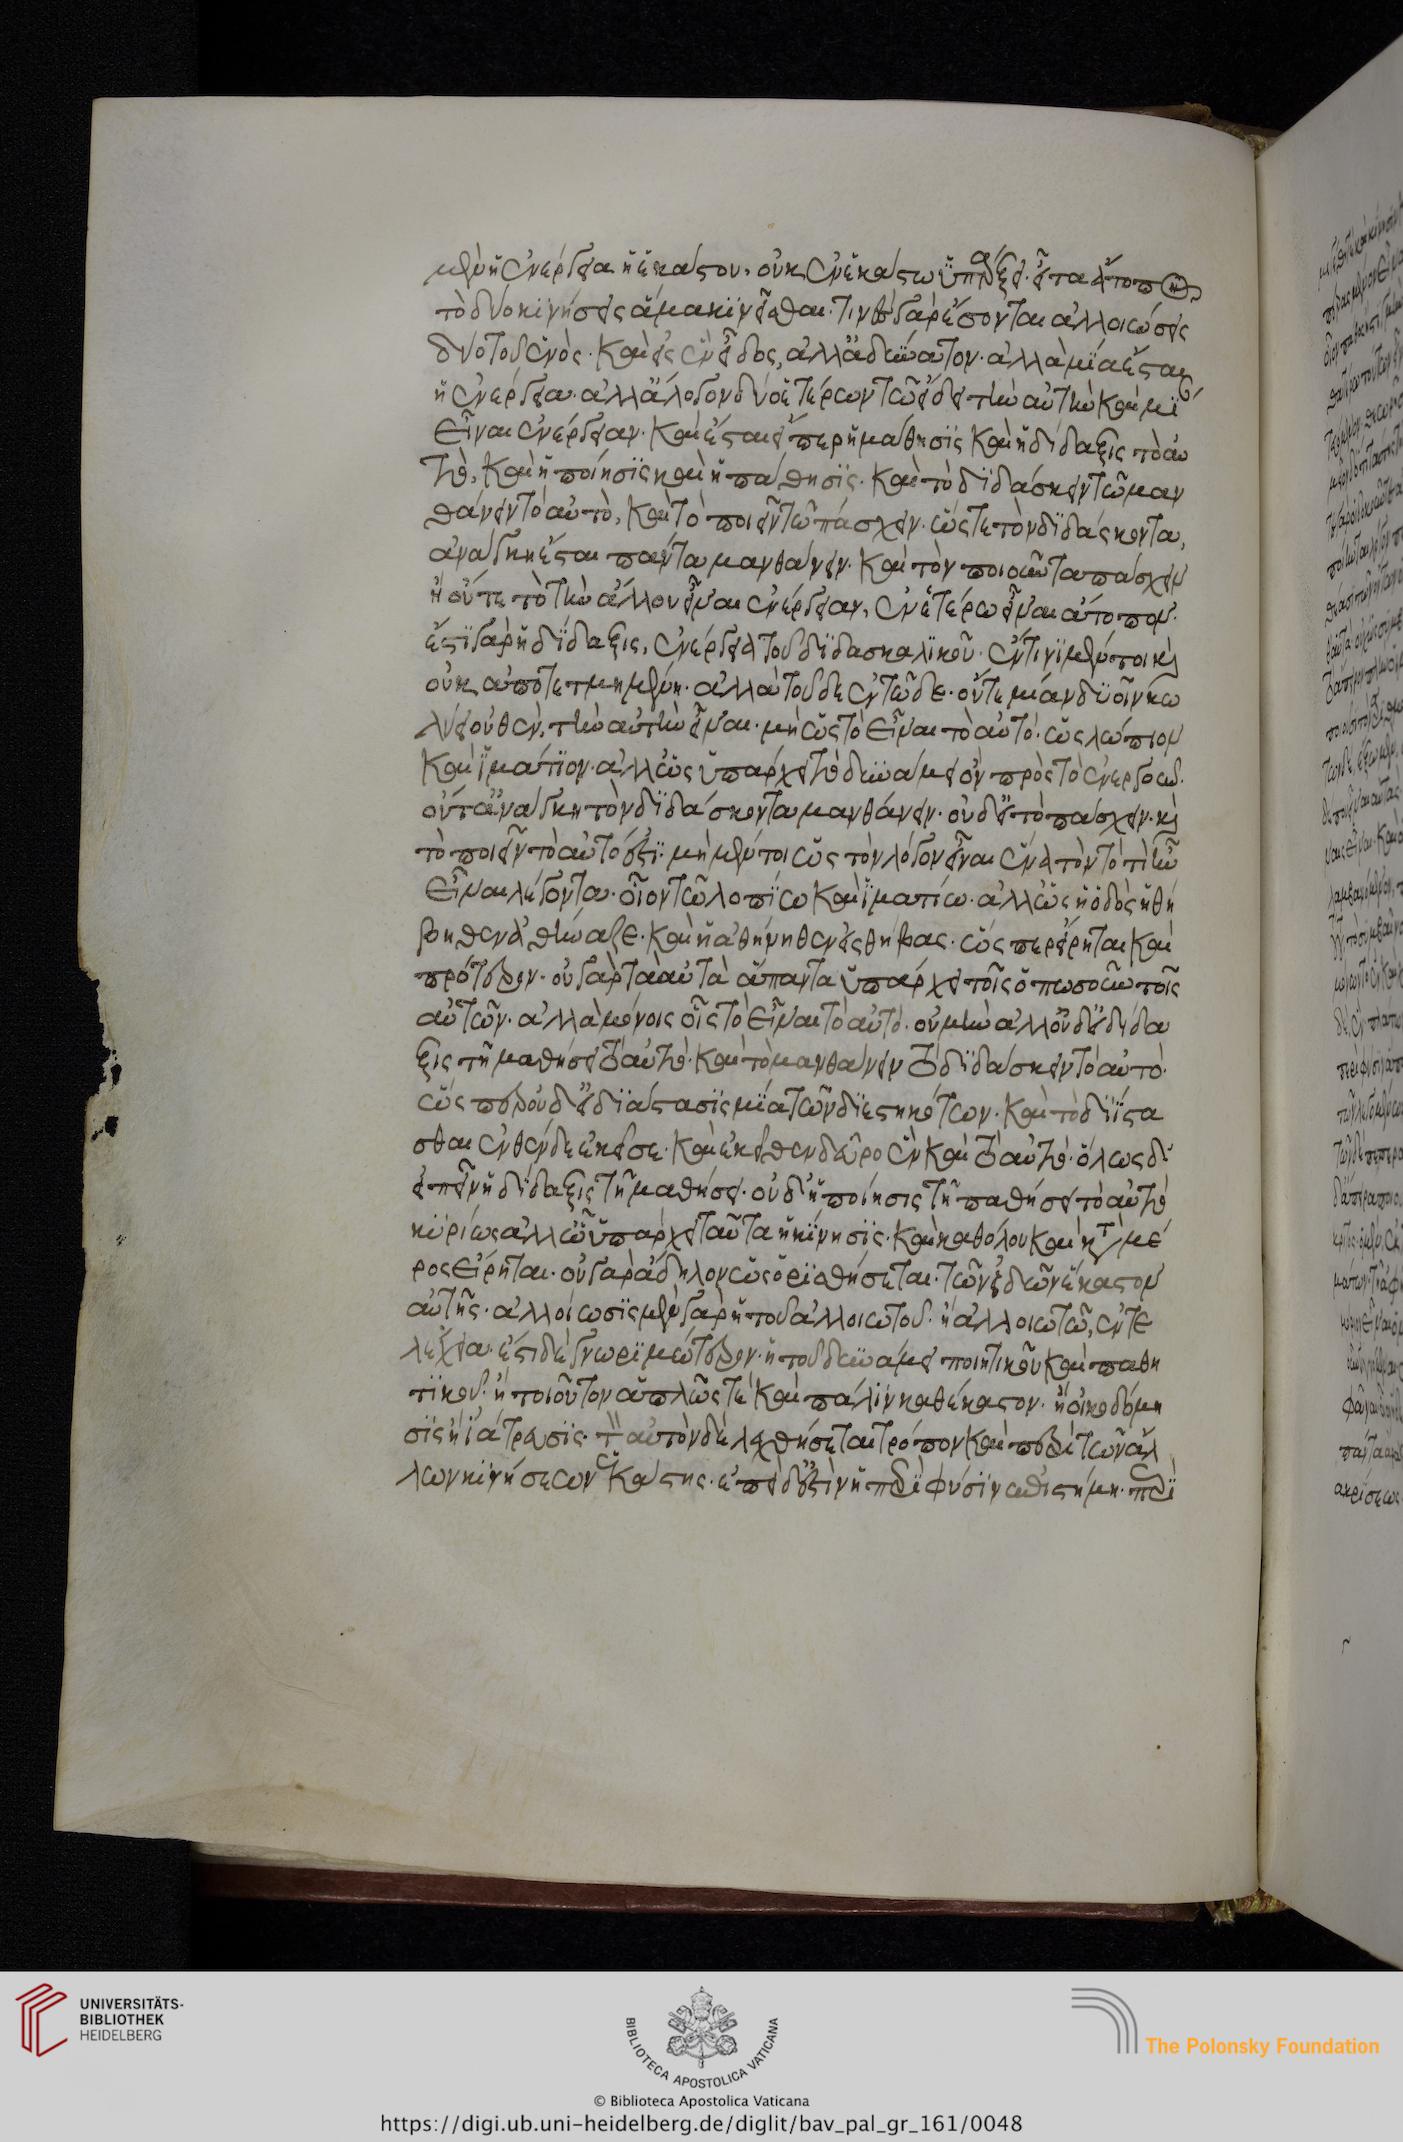 μὲν ἡ ἐνέργεια ἡ ἑκάστου, οὐκ ἐν ἑκάστω ὑπάρξει· εἶτα ἄτοπον
τὸ δύο κινήσεις ἅμα κινεῖσθαι· τίνες γὰρ ἔσονται ἀλλοιώσεις
δύο τοῦ ἑνὸς· καὶ εἰς ἓν εἶδος, ἀλλ' ἀδύνατον· ἀλλὰ μία ἔσται
ἡ ἐνέργεια· ἀλλ' ἄλογον δύο ἑτέρων τῶ εἴδει τὴν αὐτὴν καὶ μί
εἶναι ἐνέργειαν· καὶ ἔσται εἴπερ ἡ μάθησις καὶ ἡ δίδαξις τὸ αὐ
τὸ, καὶ ἡ ποίησις καὶ ἡ πάθησις· καὶ τὸ διδάσκειν τῶ μαν
θάνειν τὸ αὐτὸ, καὶ τὸ ποιεῖν τῶ πάσχειν· ὥστε τὸν διδάσκοντα,
ἀνάγκη ἔσται πάντα μανθάνειν· καὶ τὸν ποιοῦντα πάσχειν
ἢ οὔτε τὸ τὴν ἄλλου εἶναι ἐνέργειαν, ἐν ἑτέρω εἶναι ἄτοπον·
ἔστι γὰρ ἡ δίδαξις, ἐνέργεια τοῦ διδασκαλικοῦ· ἔν τινι μέντοι καὶ
οὐκ ἀποτετμημένη· ἀλλὰ τοῦδε ἐν τῶδε· οὔτε μίαν δυοῖν κω
λύει οὐθὲν, τὴν αὐτὴν εἶναι· μὴ ὡς τὸ εἶναι τὸ αὐτό· ὡς λώπιον
καὶ ἱμάτιον· ἀλλ' ὡς ὑπάρχει τὸ δυνάμει ὂν πρὸς τὸ ἐνεργοῦν·
οὔτ' ἀνάγκη τὸν διδάσκοντα μανθάνειν· οὐδ' εἰ τὸ πάσχειν καὶ
τὸ ποιεῖν τὸ αὐτό ἐστι· μὴ μέντοι ὡς τὸν λόγον εἶναι ἕνα τὸν τὸ τί ἦν
εἶναι λέγοντα· οἷον τῶ λοπίω καὶ ἱματίω· ἀλλ' ὡς ἡ ὁδὸς ἡ θή
βηθεν ἀθήναζε· καὶ ἡ ἀθήνηθεν εἰς θήβας· ὥσπερ εἴρηται καὶ
πρότερον· οὐ γὰρ ταὐτὰ ἅπαντα ὑπάρχει τοῖς ὁπωσοῦν τοῖς
αὐτῶν· ἀλλὰ μόνοις οἷς τὸ εἶναι τὸ αὐτό· οὐ μὴν ἀλλ' οὐδ' εἰ δίδα
ξις τῆ μαθήσει τὸ αὐτό· καὶ τὸ μανθάνειν τὸ διδάσκειν τὸ αὐτό·
ὥσπερ οὐδ' εἰ διάστασις μία τῶν διεστηκότων· καὶ τὸ διΐστα
σθαι ἐνθένδε ἐκεῖσε· καὶ ἐκεῖθεν δεῦρο ἓν καὶ τὸ αὐτό· ὅλως δ'
εἰπεῖν ἡ δίδαξις τῆ μαθήσει· οὐδ' ἡ ποίησις τῆ παθήσει τὸ αὐτὸ
κυρίως ἀλλ' ὧ ὑπάρχει ταῦτα ἡ κίνησις· καὶ καθόλου καὶ κατὰ μέ
ρος εἴρηται· οὐ γὰρ ἄδηλον ὡς ὁρισθήσεται· τῶν εἰδῶν ἕκαστον
αὐτῆς· ἀλλοίωσις μὲν γὰρ ἡ τοῦ ἀλλοιωτοῦ· ἡ ἀλλοιωτῶ, ἐντε
λέχεια· ἔτι δὲ γνωριμώτερον· ἡ τοῦ δυνάμει ποιητικοῦ καὶ παθη
τικοῦ· ἡ τοιοῦτον ἁπλῶς τὲ καὶ πάλιν καθέκαστον· ἢ οἰκοδόμη
σις ἢ ἰάτρευσις· τὸν αὐτὸν δὲ λεχθήσεται τρόπον καὶ περὶ τῶν ἄλ
λων κινήσεων ἑκάστης· ἐπεὶ δ' ἐστὶν ἡ περὶ φύσιν ἐπιστήμη· περὶ
UNIVERSITÄTS-
BIBLIOTHEK
HEIDELBERG
BIBLIOTECA APOSTOLICA VATICANA
The Polonsky Foundation
© Biblioteca Apostolica Vaticana
https://digi.ub.uni-heidelberg.de/diglit/bav_pal_gr_161/0048